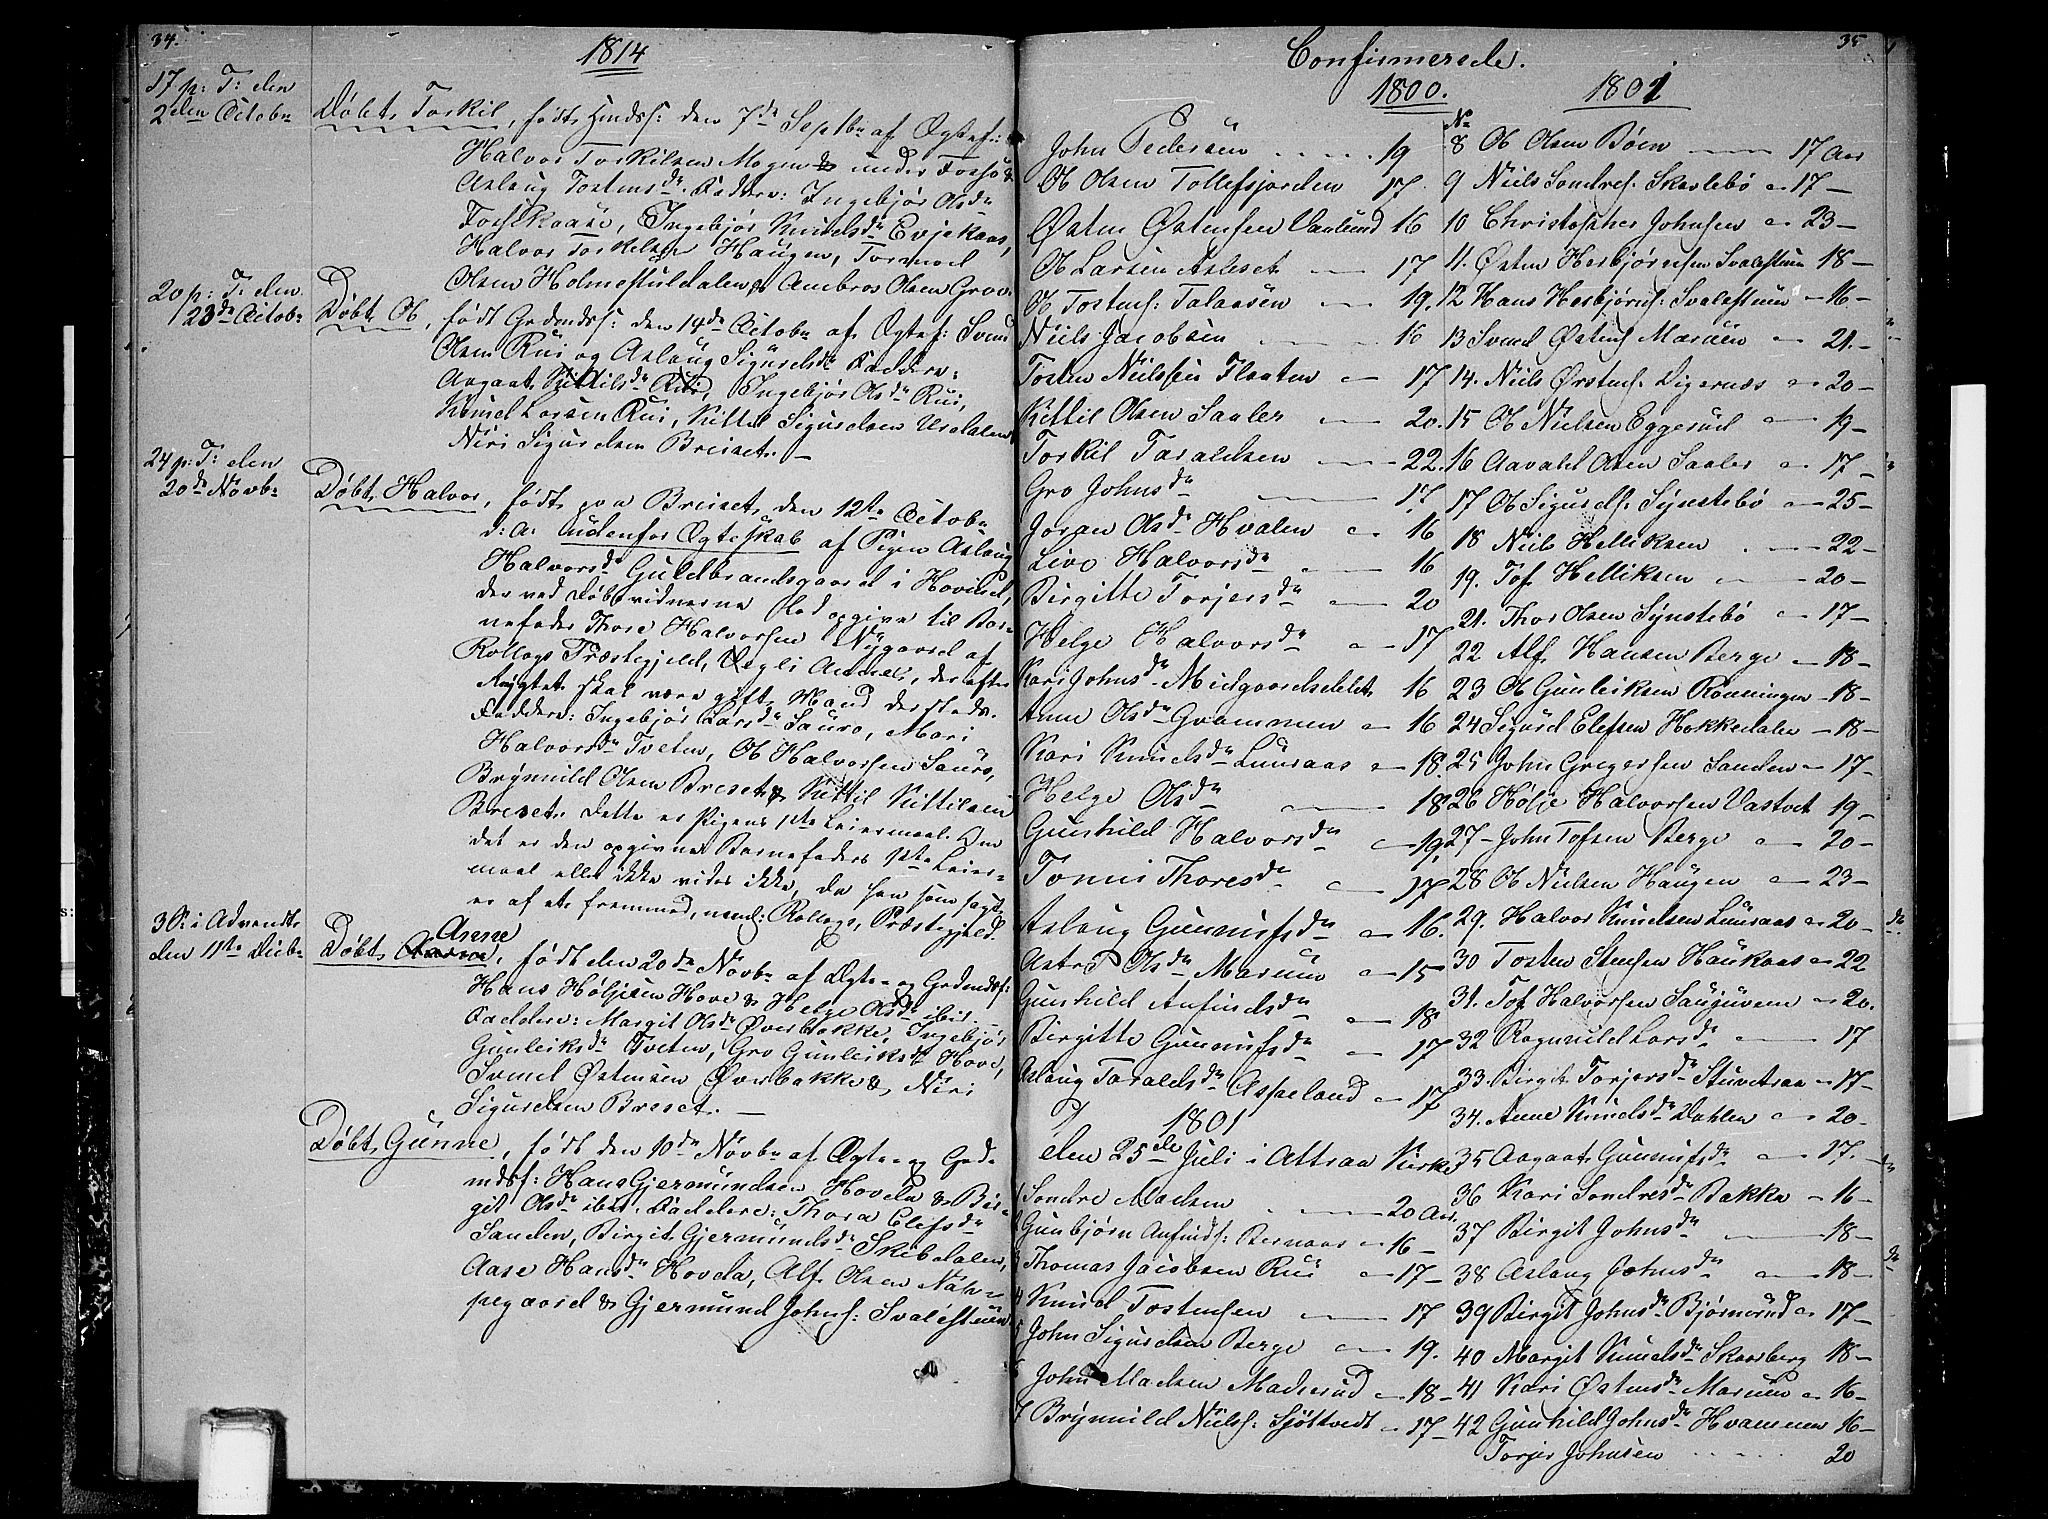 34.
1814
17 p: T: den
2den Octobr
Døbt Torkil, født Hmdsf: den 7de Septbr af Ægtef:
Halvor Torkilsen Mogen & under Fosso &
Aslaug Tostensdr. Faddere: Ingebjør Olsdr
Foslkaase, Ingebjør Knudsdr Evjekaas,
Halvor Torkilsen Haugen, Tormod
Olsen Holmestuldalen & Ambros Olsen Grov.
20 p: T: den
23de Octobr
Døbt Ol, født Grdmdsf: den 14de Octobr af Ægtef: Svend
Olsen Rui og Aslaug Sigursdr Faddere:
Aagaat Kittilsdr Rui, Ingebjør Olsdr Rui,
Knud Larsen Rui, Kittil Sigurdsen Urdalen
Niri Sigurdsen Breiset. —
24 p: T: den
20de Novbr
Døbt Halvor, født paa Breiset den 12te Octobr
d: A: udenfor Ægteskab af Pigen Aslaug
Halvorsdr Guldbrandsgaard i Hovind,
der ved Døbsvidnerne lod opgive til Bar-
nefader Thore Halvorsen Nygaard af
Rollogs Præstegjeld, Vegli Annex, der efter
Rygtet skal være gift Mand dersteds.
Faddere: Ingebjør Larsdr Sauro, Mari
Halvorsdr Tveten, Ol Halvorsen Sauro,
Brynuld Olsen Breset & Kittil Kittilsen
Breset. Dette er Pigens 1ste Leiermaal. Om
det er den opgivne Barnefaders 1ste Leier-
maal eller ikke vides ikke, da han som sagt
er af et fremmed, nemt: Rollogs, Præstegjeld.
3 S: i Advendt
den 11te Decbr
Anne
Døbt, født den 20de Novbr af Ægte- og Grdmdsf:
Hans Høljesen Hove & Helge Olsdr ibid.
Faddere: Margit Olsdr Øverbakke, Ingebjør
Gunleiksdr Tveten, Gro Gunleiksdr Hove,
Svend Østensen Øverbakke & Niri
Sigurdsen Breset. —
Døbt Gunne, født den 10de Novbr af Ægte- og Grd-
mdsf: Hans Gjermundsen Hovda & Bir-
git Olsdr ibid. Faddere: Thora Elefsdr
Sanden, Birgit Gjermundsdr Skibdalen,
Aase Hansdr Hovda, Alf Olsen Nær-
pegaard & Gjermund Johnsf: Svalestuen.
35
Confirmerede.
1800.
John Pedersen 19
Ol Olsen Tollefsjorden 17.
Østen Østensen Vaalund 16
Ol Larsen Asleset 17
Ol Tostensf: Talaasen 19.
Niels Jacobsen 16
Tosten Nielsen Flaaten 17
Kittil Olsen Saaler 20.
Torkil Taraldsen 22.
Gro Johnsdr 17.
Joran Olsdr Hvalen 16
Live Halvorsdr 16
Birgitte Torjersdr 20
Helge Halvorsdr 17
Kari Johnsdr Midgaardsdelet 16
Anne Olsdr Grammen 16
Kari Knudsdr Luraas 18.
Helge Olsdr 18
Gunhild Halvorsdr 19.
Tonni Thoresdr 17
Aslaug Gunnufsdr 16.
Astri Olsdr Marum 15
Gunhild Anfindsdr 18
Birgitte Gunnufsdr 17
Aslaug Taraldsdr Aspeland 17
1801
den 25de Juli i Attraa Kirke
1 Sondre Madsen 20 Aar.
2 Gunbjørn Anfindsf: Bernaas 16 —
3 Thomas Jacobsen Rui 17 —
4 Knud Tostensen 17
5 John Sigurdsen Berge 19.
6 John Madsen Maderud 18 —
7 Brynuld Nielsf: Sjøttvedt 17 —
1801
No
8 Ol Olsen Bøen 17 Aar
9 Niels Sondresf: Skavlebø 17 —
10 Christopher Johnsen 23 —
11. Østen Herbjørnsen Svalestuen 18 —
12 Hans Herbjørnsf: Svalestuen 16 —
13 Svend Østensf: Maruen 21. —
14. Niels Østensf: Digernæs 20 —
15 Ol Nielsen Eggerud 19 —
16 Aavald Olsen Saaler 17 —
17 Ol Sigurdsf: Synstebø 25 —
18 Niels Helliksen 22 —
19. Tof Helliksen 20 —
21. Thor Olsen Synstebø 17 —
22 Alf Hansen Berge 18 —
23 Ol Gunleiksen Rønningen 18 —
24 Sigurd Elefsen Hokkedalen 18 —
25 John Gregersen Sanden 17 —
26 Hølje Halvorsen Vastvet 19 —
27 — John Tofsen Berge 20 —
28 Ol Nielsen Haugen 23 —
29. Halvor Knudsen Luraas 20 —
30 Tosten Stensen Haukaas 22
31. Tof Halvorsen Sauguven 20.
32 Ragnuld Larsdr 17
33 Birgit Torjersdr Stuvetraa 17 —
34. Anne Knudsdr Dahlen 20 —
35 Aagaat Gunnufsdr 17. —
36 Kari Sondresdr Bakke 16 —
37 Birgit Johnsdr 18 —
38 Aslaug Johnsdr 18 —
39 Birgit Johnsdr Bjørnerud 17 —
40 Margit Knudsdr Skarsberg 18 —
41 Kari Østensdr Maruen 16 —
42 Gunhild Johnsdr Hvammen 16 —
Torjer Johnsen 20